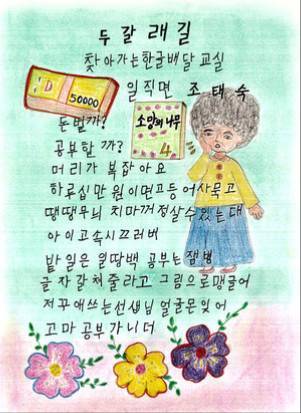 두 갈 래 길
찾아가는한글배달교실
일직면 조태숙
50000
돈벌까?
소망의 나무
4
공부할 까?
머리가 복잡아요
하루십만원이면고등어사묵고
땡땡무늬 치마꺼정살수있는대
아이고속시끄러버
밭일은 원땅백 공부는잼병
글자갈쳐줄라고 그림으로맹글어
저꾸애쓰는선생님얼굴몬잊어
고마공부가니더